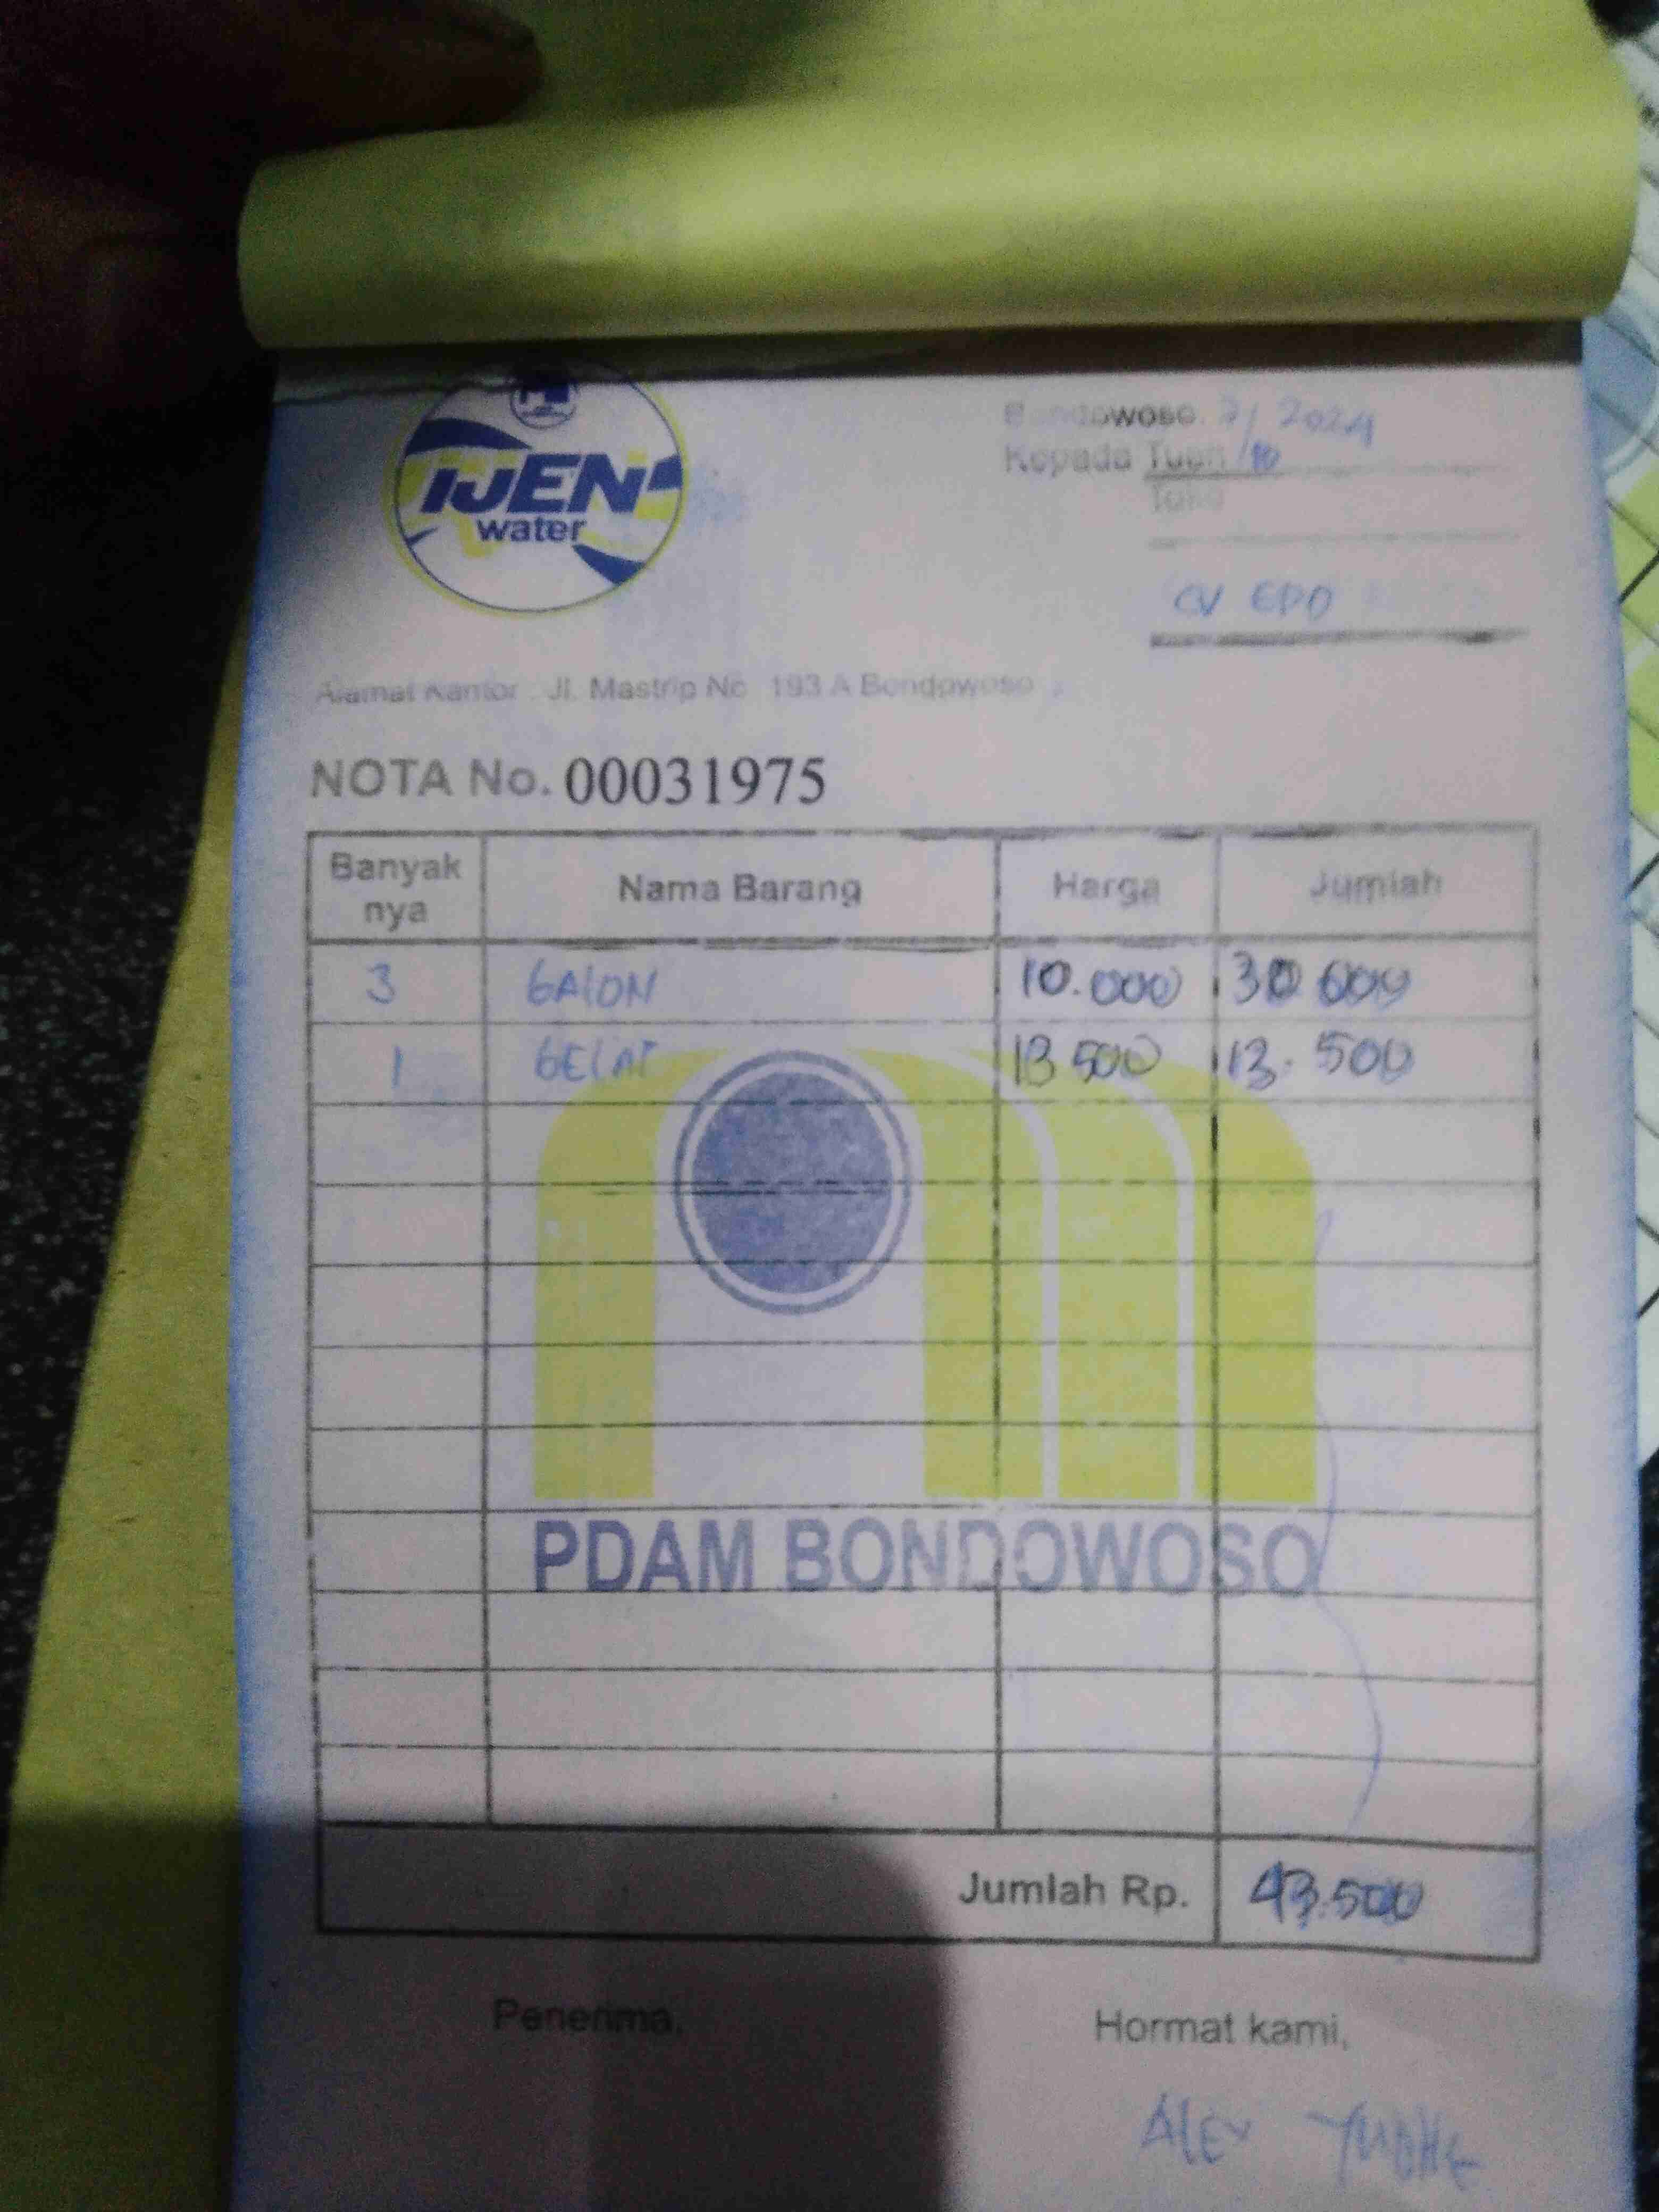 IJEN
water
Bondowoso. 7/10 2024
Kepada Tuan
Toko
CV EDO
Alamat Kantor : Jl. Mastrip No. 193 A Bondowoso
NOTA No. 00031975
Banyak nya Nama Barang Harga Jumlah
3 GALON 10.000 30 000
1 GELAT 13 500 13.500
PDAM BONDOWOSO
Jumlah Rp. 43.500
Penerima, Hormat kami,
ALEX